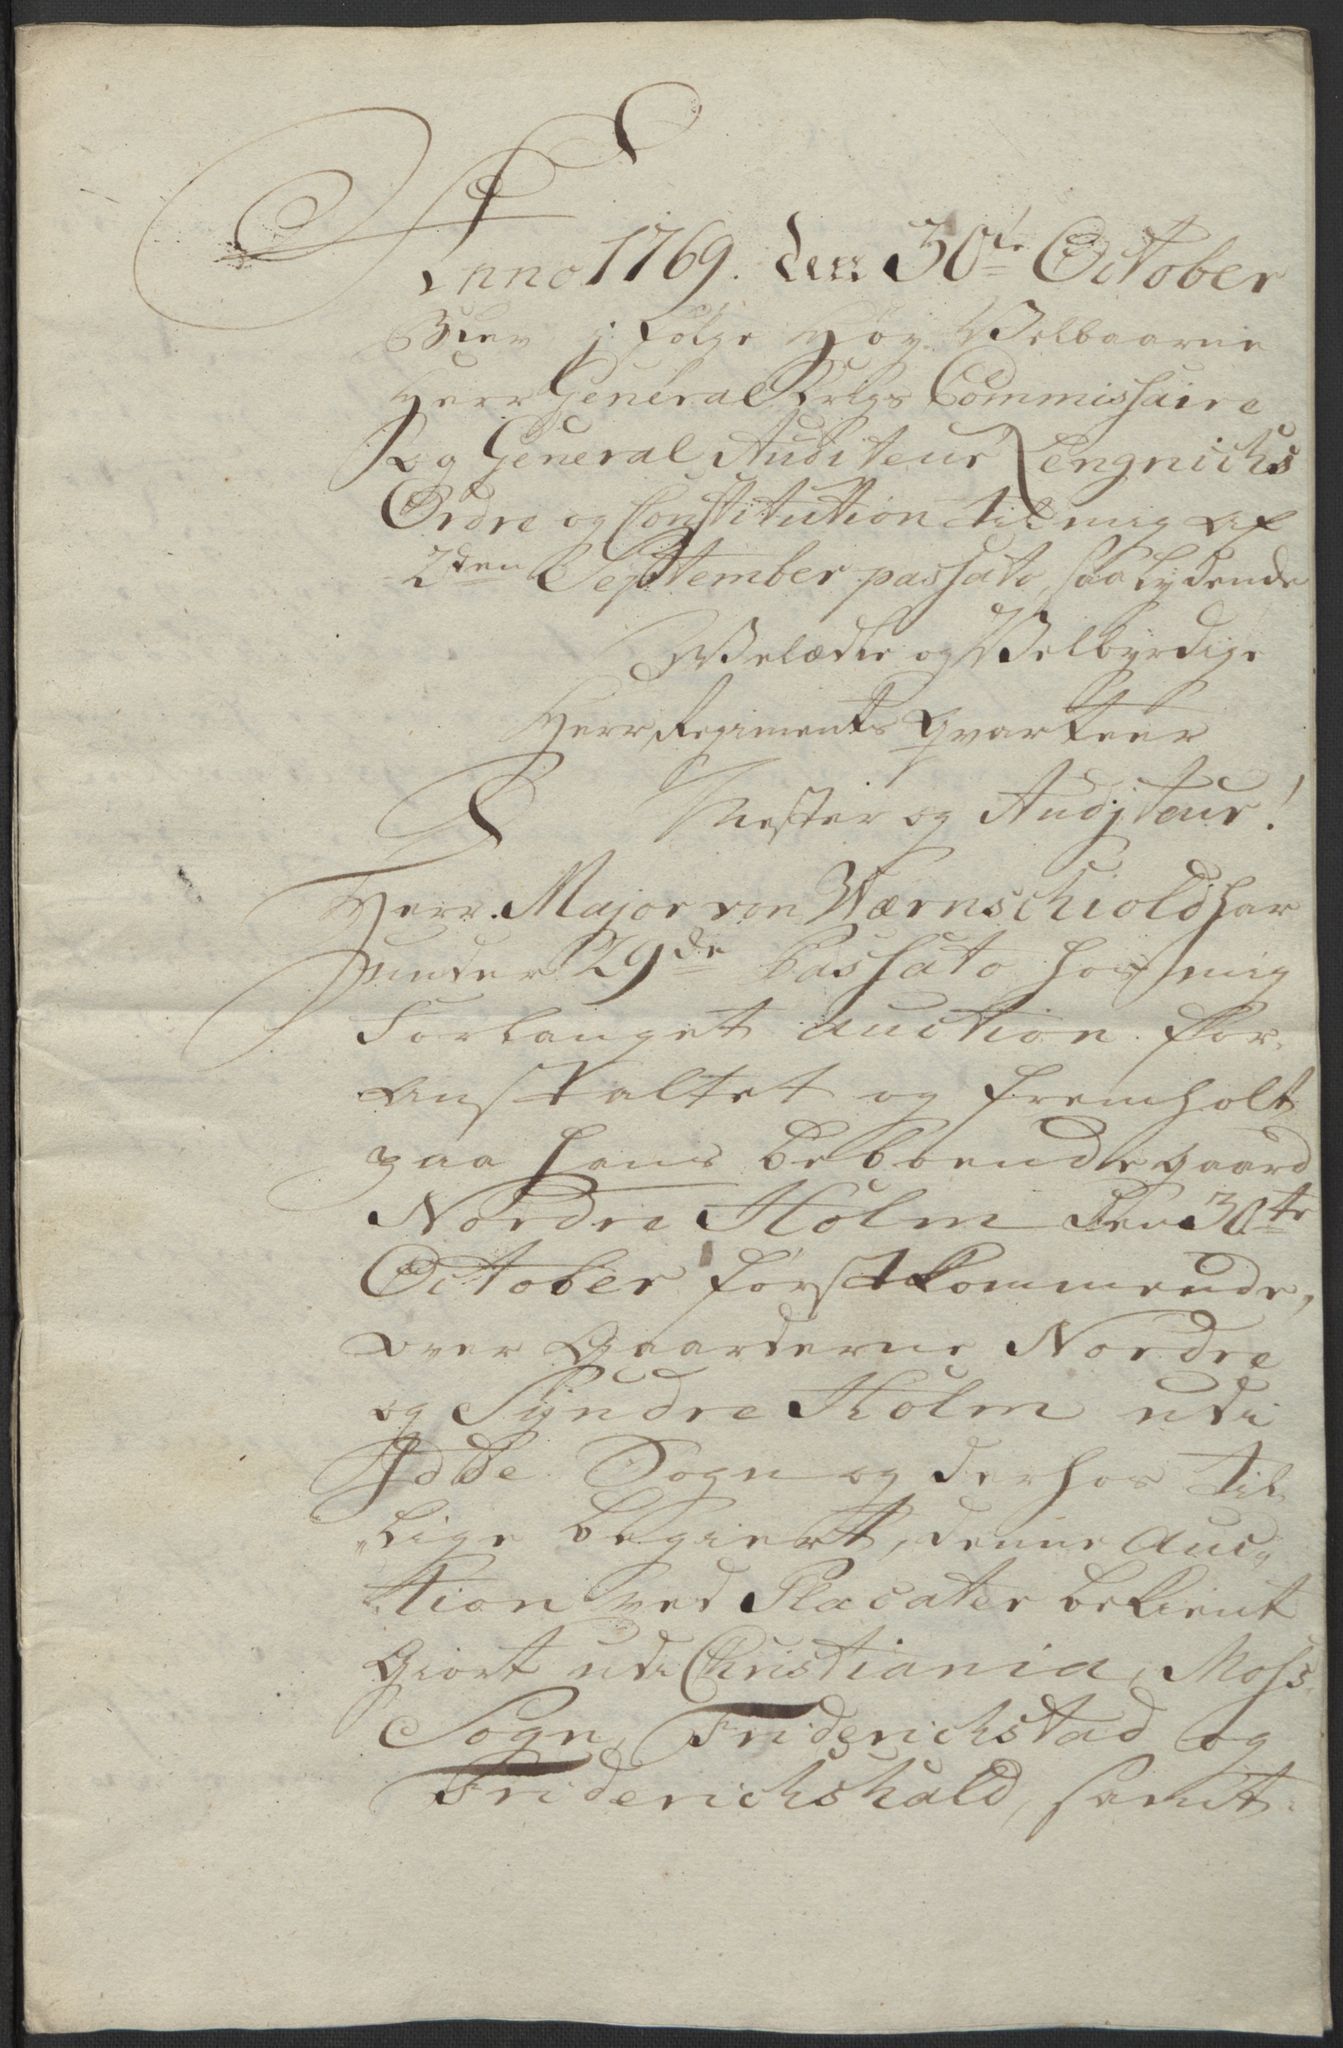 Anno 1769. den 30te October
Blev j følge Høy Velbaarne
Herr General Krigs Commissaire
Og General Auditeur Lengnichs
Ordre og Constitution til mig af
2den September passato, saa lydende
Velædle og Velbyrdige
Herr Regiments Qvarteer
Mester og Auditeur!
Herr Major von Wærnschiold har
under 29de Passato hos mig
Forlanget Auction for,
anstaltet og fremholt
paa hans beboende gaard
Nordre Holm den 30te
October førstkommende,
over Gaarderne Nordre
og Syndre Holm udi
Idde Sogn og derhos til
lige begiert, denne Auc,,
tion ved Placater bekient
Giort udi Christiania, Moss,
Sogn, Friderichstad og
Friderichshald, samt